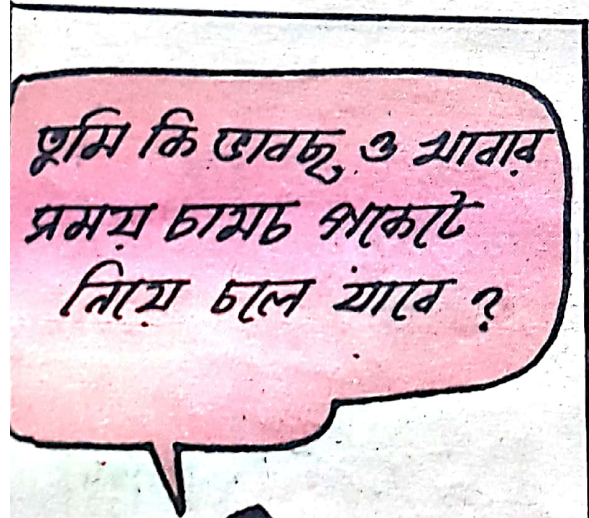 তুমি কি ভাবছ ও খাবার
সময় চামচ পকেটে
নিয়ে চলে যাবে ?